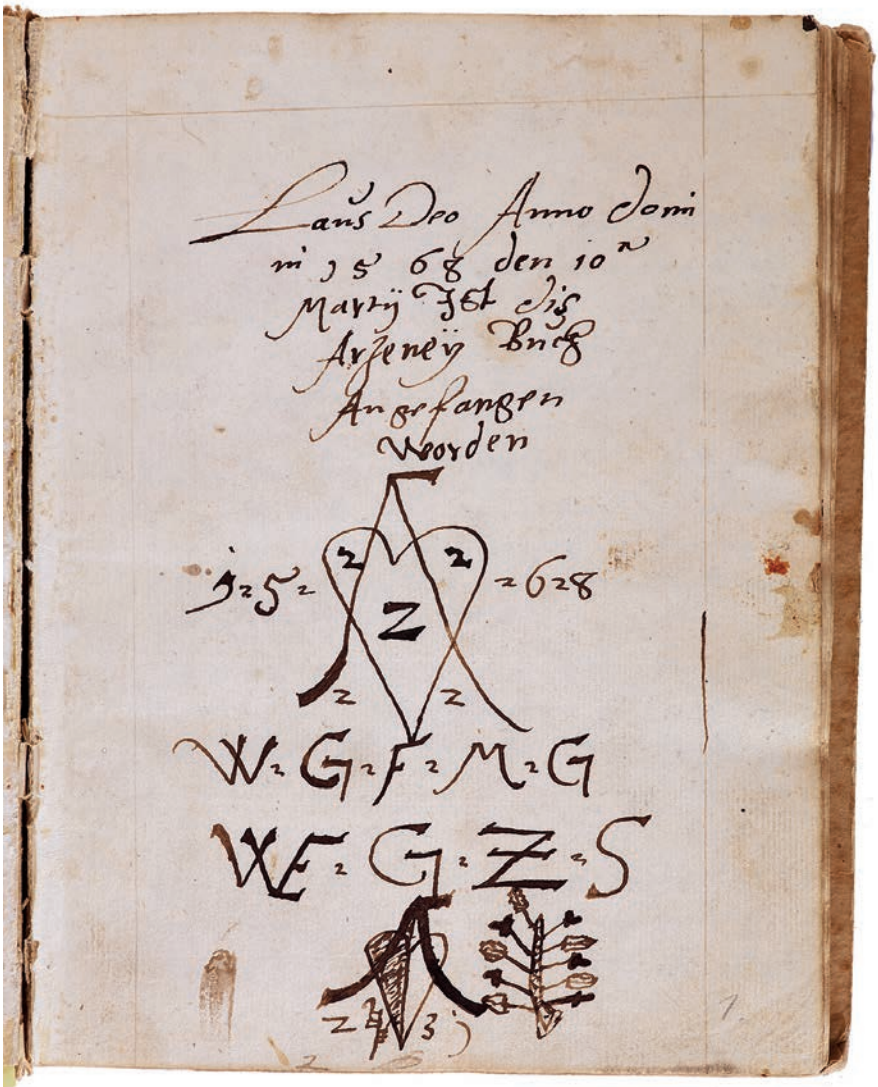 Laus Deo Anno Domi
ni 1568 den 10
Martÿ Ist dis
Arzeneÿ Buch
Angefangen
Worden
2 2
1=5= =6=8
Z
2 2
W=G=F=M=G
WE=G=Z=S
Z 3
1